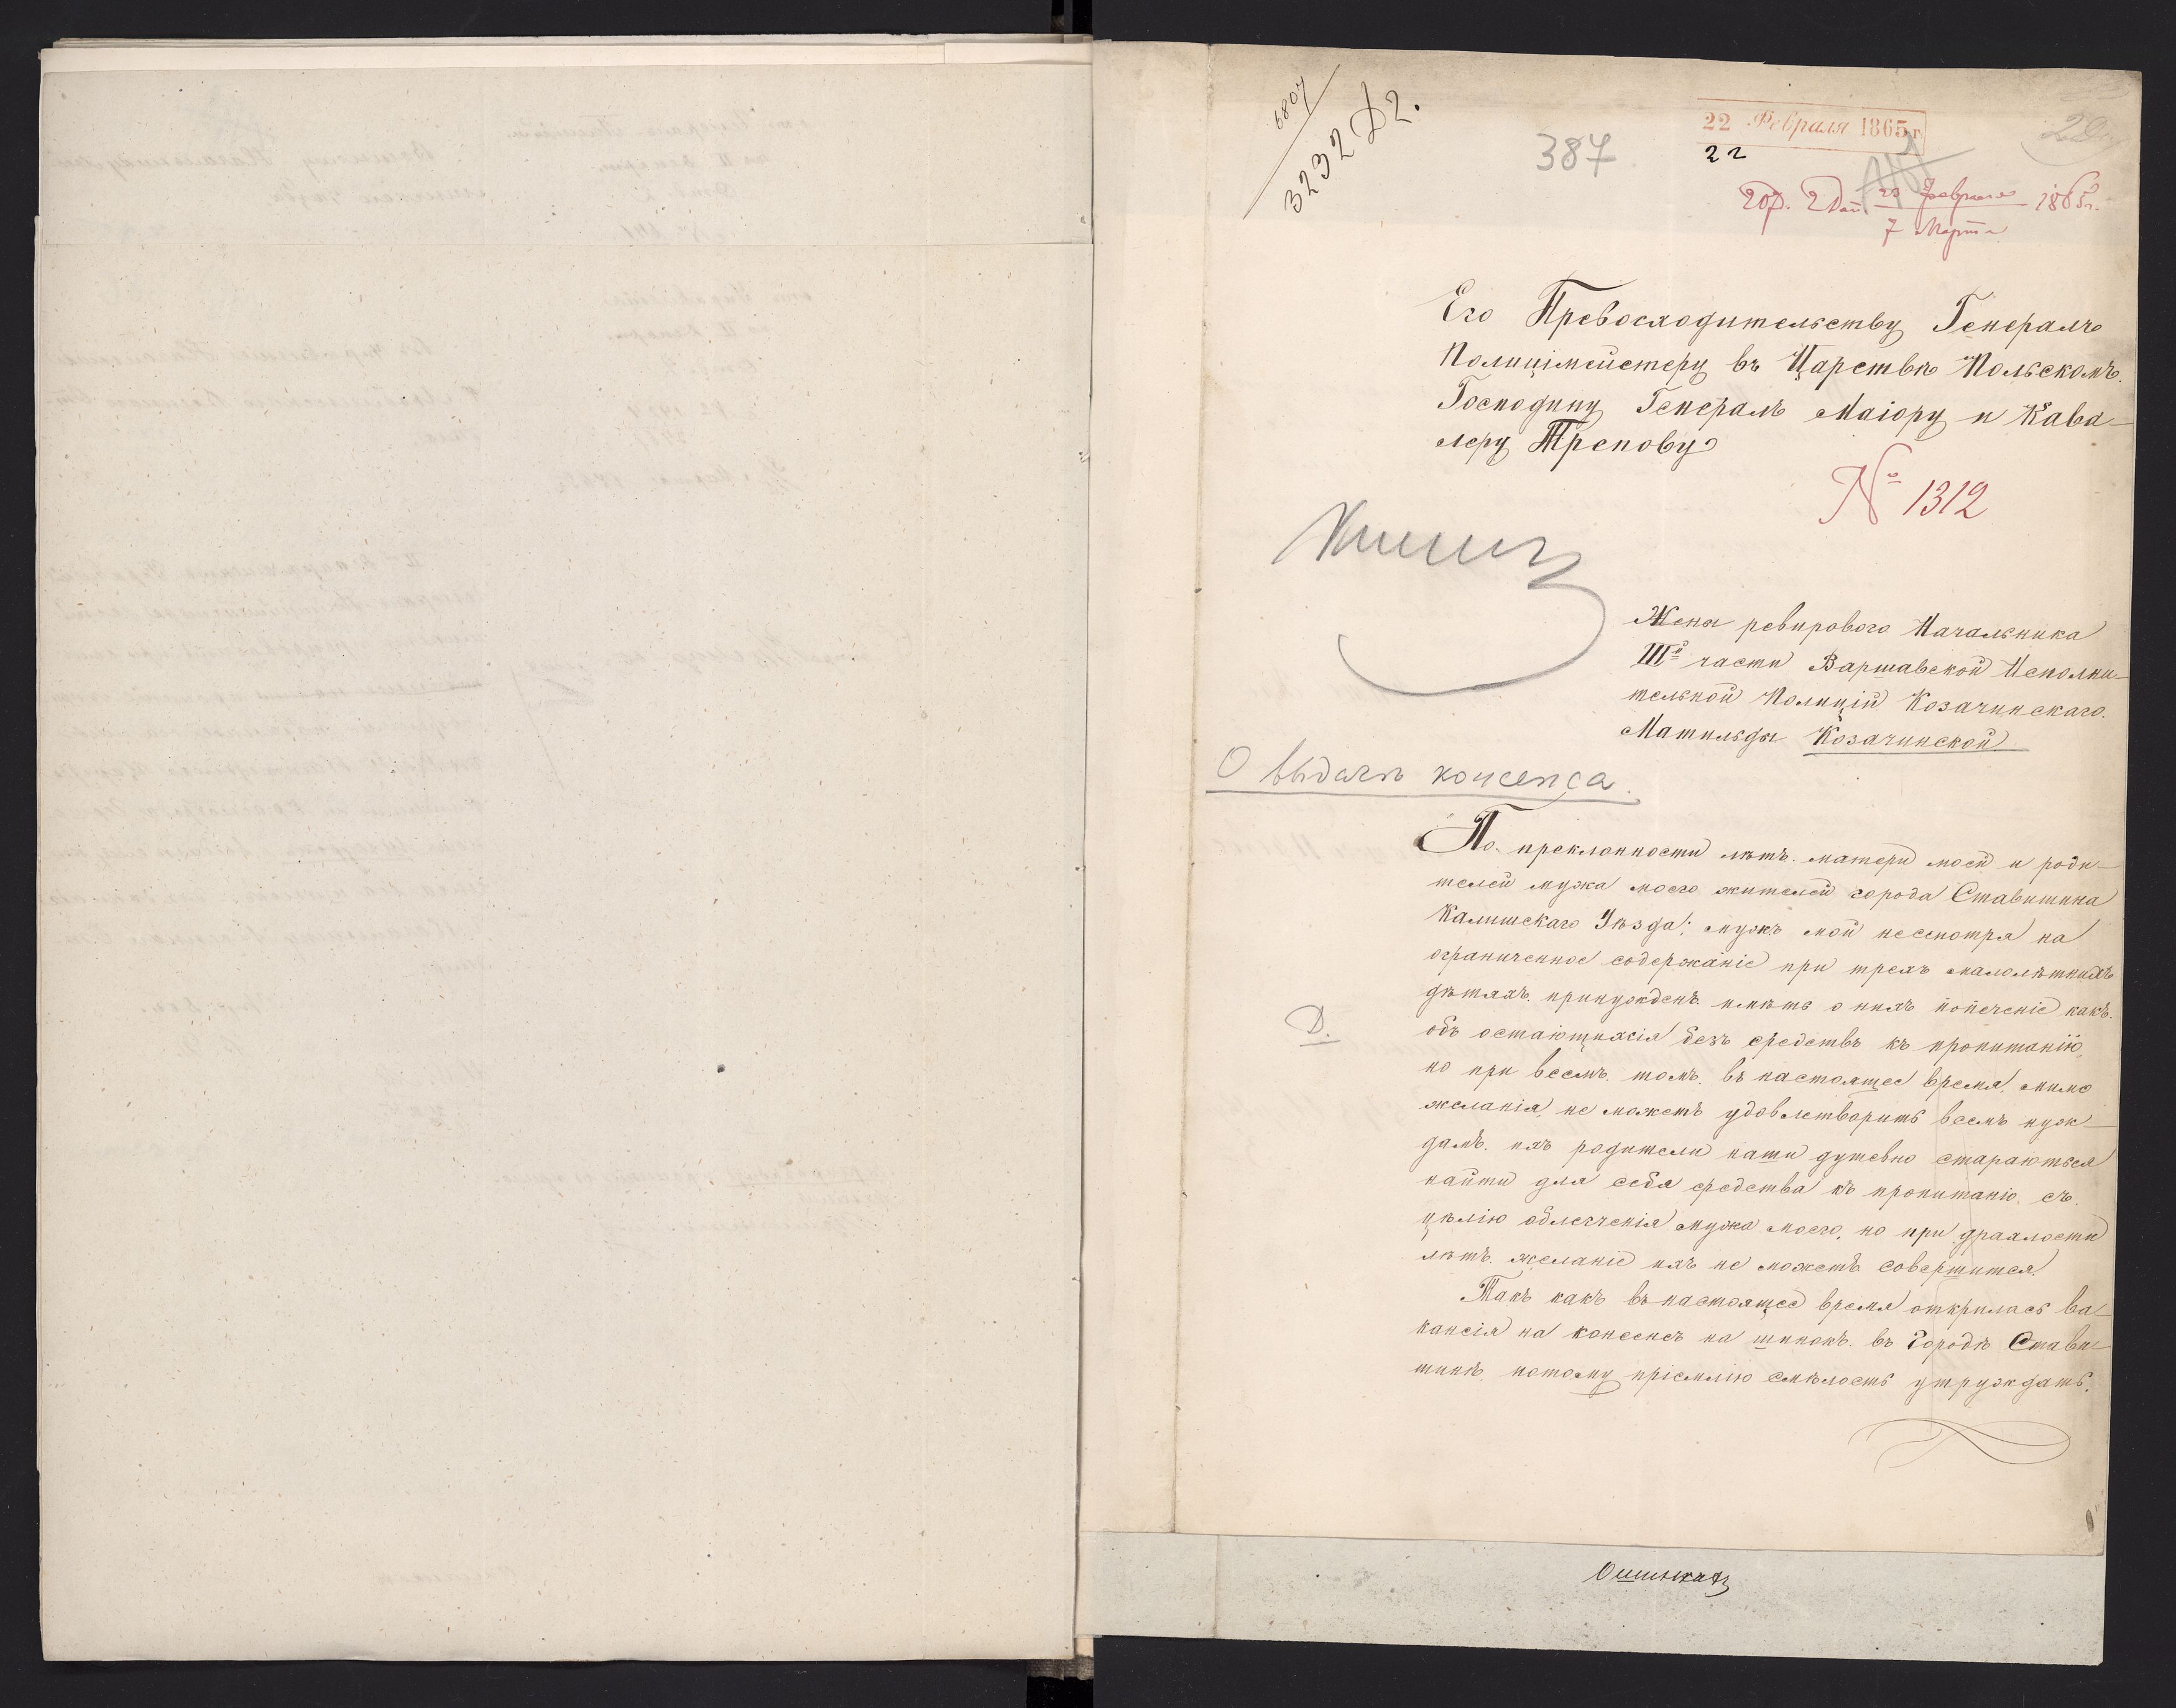 6807
3232 Д2.
387
22 Февраля 1865 г
22
20р. 2 Дѣл. 23 Февраля 1865 г.
7 Марта
Его Превосходительству Генералъ
Полиціймейстеру въ Царствѣ Польскомъ.
Господину Генералъ Маіору и Кава-
леру Трепову
№ 1312
Жены ревироваго Начальника
IIIй части Варшавской Исполни-
тельной Полиціи Козачинскаго.
Матильды Козачинской
О выдачѣ консенса.
По преклонности лѣтъ матери моей и роди-
телей мужа моего жителей города Ставишина
Калишскаго Уѣзда; мужъ мой несмотря на
ограниченное содержаніе при трехъ малолѣтныхъ
дѣтяхъ принужденъ имѣть о нихъ попеченіе какъ
Д.
объ остающихсія безъ средствъ къ пропитанію,
но при всемъ томъ въ настоящее время, мимо
желанія не можетъ удовлетворить всемъ нуж-
дамъ ихъ родители наши душевно стараються
найти для себя средства къ пропитанію съ
цѣлію облегченія мужа моего, но при драхлости
лѣтъ желаніе ихъ не можетъ совершится.
Такъ какъ въ настоящее время открылась ва-
кансія на консенсъ на шинокъ въ Городѣ Стави-
шинѣ потому пріемлю смѣлость утруждать.